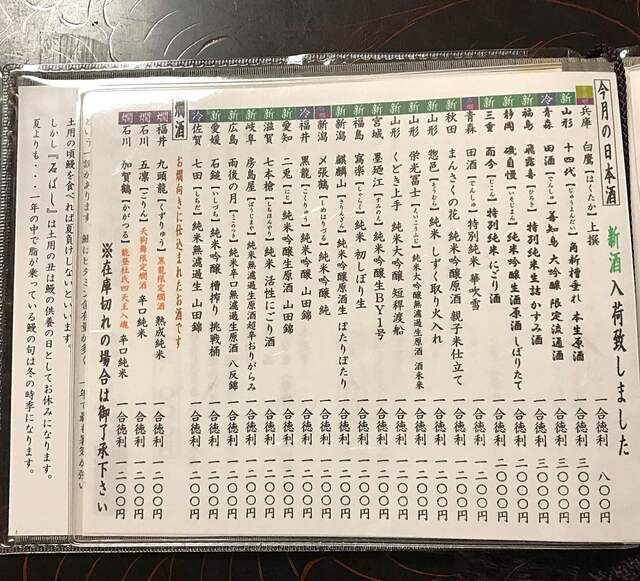 今月の日本酒 新酒入荷致しました
兵庫 白鷹【はくたか】上撰 一合徳利 八〇〇円
新 山形 十四代【じゅうよんだい】角新槽垂れ 本生原酒 一合徳利 三〇〇〇円
冷 青森 田酒【でんしゅ】善知鳥 大吟醸 限定流通酒 一合徳利 三〇〇〇円
新 福島 飛露喜【ひろき】特別純米生詰かすみ酒 一合徳利
新 静岡 磯自慢 純米吟醸生酒原酒 しぼりたて 一合徳利
新 三重 而今【じこん】特別純米にごり酒 一合徳利
青森 田酒【でんしゅ】特別純米 華吹雪 一合徳利
新 秋田 まんさくの花 純米吟醸原酒 親子米仕立て 一合徳利 一二〇〇円
新 山形 惣邑 純米 しずく取り火入れ 一合徳利 一二〇〇円
新 山形 栄光冨士 純米大吟醸無濾過生原酒 一合徳利 一二〇〇円
新 山形 くどき上手 純米大吟醸 短稈渡船 一合徳利 一二〇〇円
新 宮城 墨廼江【すみのえ】純米吟醸生BY1号 一合徳利 一二〇〇円
新 福島 寫楽【しゃらく】純米 初しぼり生 一合徳利 一二〇〇円
新 新潟 麒麟山【きりんざん】純米吟醸生原酒 ぽたりぽたり 一合徳利 一二〇〇円
新 新潟 〆張鶴【しめはりつる】純米吟醸 純 一合徳利 一二〇〇円
冷 福井 黒龍【こくりゅう】純米吟醸 山田錦 一合徳利 一二〇〇円
新 愛知 二兎【にと】純米吟醸生原酒 山田錦 一合徳利 一二〇〇円
新 滋賀 七本槍【しちほんやり】純米 活性にごり酒 一合徳利 一二〇〇円
新 岐阜 房島屋【ぼうじまや】純米無濾過生原酒超辛おりがらみ 一合徳利 一二〇〇円
新 広島 雨後の月【うごのつき】純米辛口無濾過生原酒 八反錦 一合徳利 一二〇〇円
新 愛媛 石鎚【いしづち】純米吟醸 槽搾り 挑戦桶 一合徳利 一二〇〇円
冷 佐賀 七田【しちだ】純米無濾過生 山田錦 一合徳利 一二〇〇円
燗酒 お燗向きに仕込まれたお酒です
燗 福井 九頭龍【くずりゅう】黒龍限定燗酒 熟成純米 一合徳利 一二〇〇円
燗 石川 五凛【ごりん】天狗舞限定燗酒 辛口純米 一合徳利 一二〇〇円
燗 石川 加賀鶴【かがつる】能登杜氏四天王入魂 辛口純米 一合徳利 一二〇〇円
※在庫切れの場合は御了承下さい
土用の頃鰻を食べれば夏負けしないといいます。
しかし『石ばし』は土用の丑は鰻の供養の日としてお休みになります。
夏よりも・・・一年の中で脂が乗っている鰻の旬は冬の時季になります。